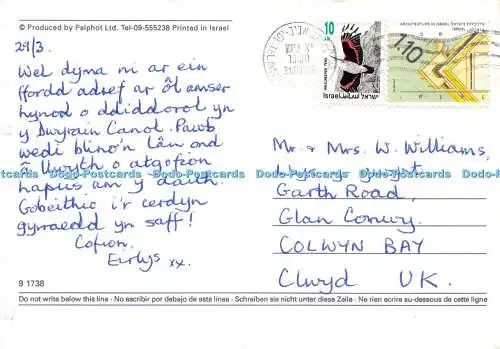 © Produced by Palphot Ltd. Tel-09-555238 Printed in Israel
29/3.
Wel dyma ni ar ein
ffordd adref ar ôl amser
hynod o ddiddorol yn
y Dwyrain Canol. Pawb
wedi blino'n lân ond
â llwyth o atgofion
hapus am y daith.
Gobeithio i'r cerdyn
gyrraedd yn saff!
Cofion,
Eirlys xx.
9 1738
10
Israel
ישראל
1.10
Mr. & Mrs. W. Williams,
Garth Road,
Glan Conwy,
COLWYN BAY
Clwyd UK.
Dodo-Postcards Dodo-Postcards Dodo-Postcards Dodo-Postcards
Do not write below this line - No escribir por debajo de esta linea - Schreiben sie nicht unter diese Zeile - Ne rien ecrire au-dessous de cette ligne